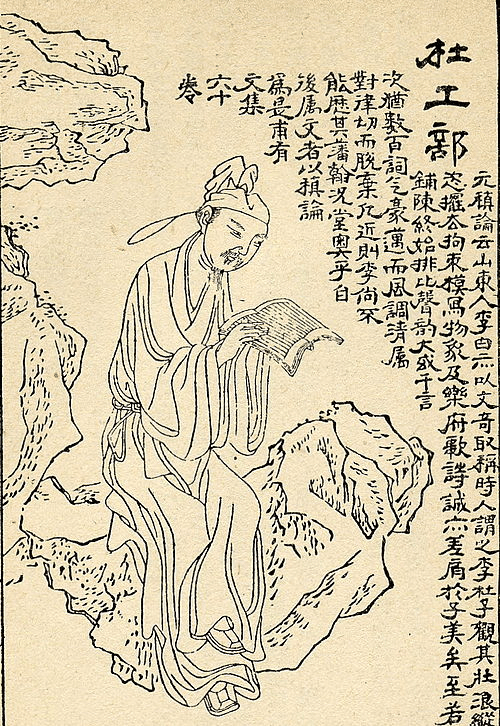 杜工部
元稹論云山東人李白亦以文奇取稱時人謂之李杜予觀其壯浪縱
恣擺去拘束模寫物象及樂府歌詩誠亦差肩於子美矣至若
鋪陳終始排比聲韵大或千言
次猶數百詞气豪邁而風調清属
對律切而脫棄凡近則李尚不
能歷其藩翰况堂奧乎白
後属文者以稹論
為是甫有
文集
六十
卷